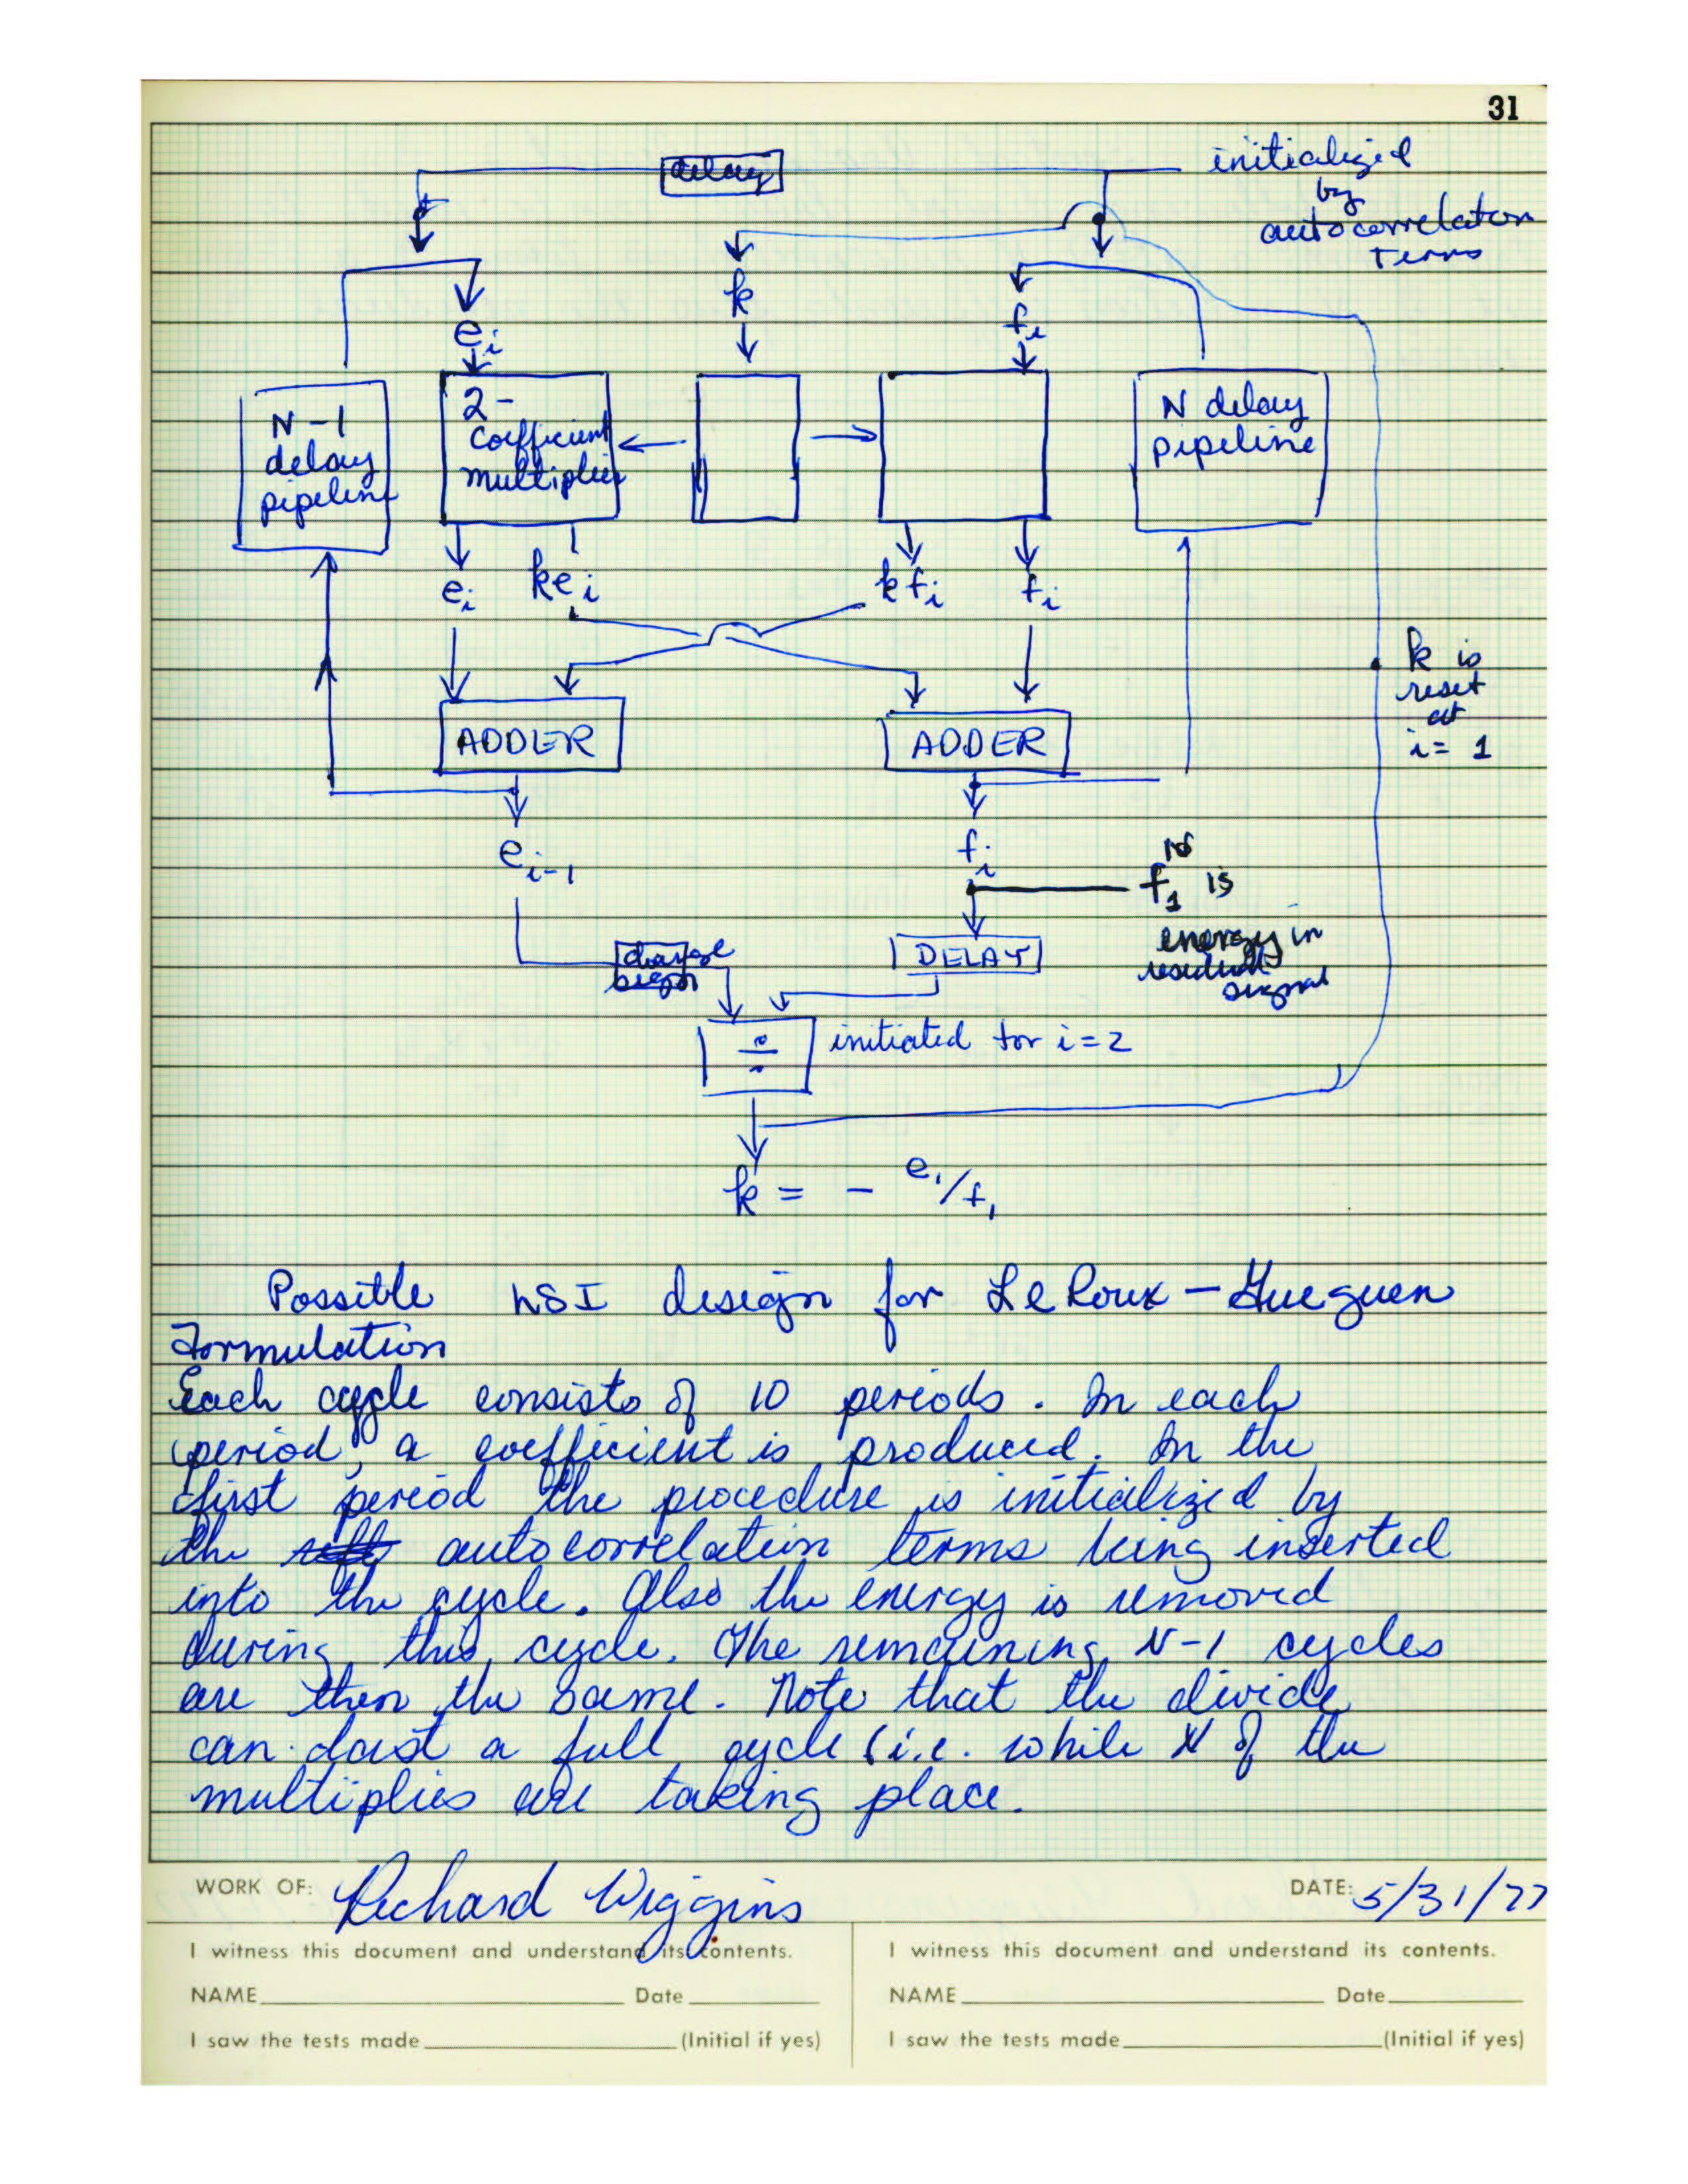 31
delay
initialized
by
autocorrelation
terms
k
e_i
f_i
N-1
delay
pipeline
2-
Coefficient
multiplier
N delay
pipeline
e_i
ke_i
kf_i
f_i
k is
reset
at
i = 1
ADDER
ADDER
e_{i-1}
f_i
f_1^{10} is
energy in
residual
signal
change
sign
DELAY
÷
initiated for i=2
k = - e_1/f_1
Possible LSI design for LeRoux-Gueguen
Formulation
Each cycle consists of 10 periods. In each
period, a coefficient is produced. In the
first period the procedure is initialized by
the autocorrelation terms being inserted
into the cycle. Also the energy is removed
during this cycle. The remaining N-1 cycles
are then the same. Note that the divide
can last a full cycle (i.e. while N of the
multiplies are taking place.
WORK OF: Richard Wiggins DATE: 5/31/77
I witness this document and understand its contents.
NAME Date
I saw the tests made (Initial if yes)
I witness this document and understand its contents.
NAME Date
I saw the tests made (Initial if yes)